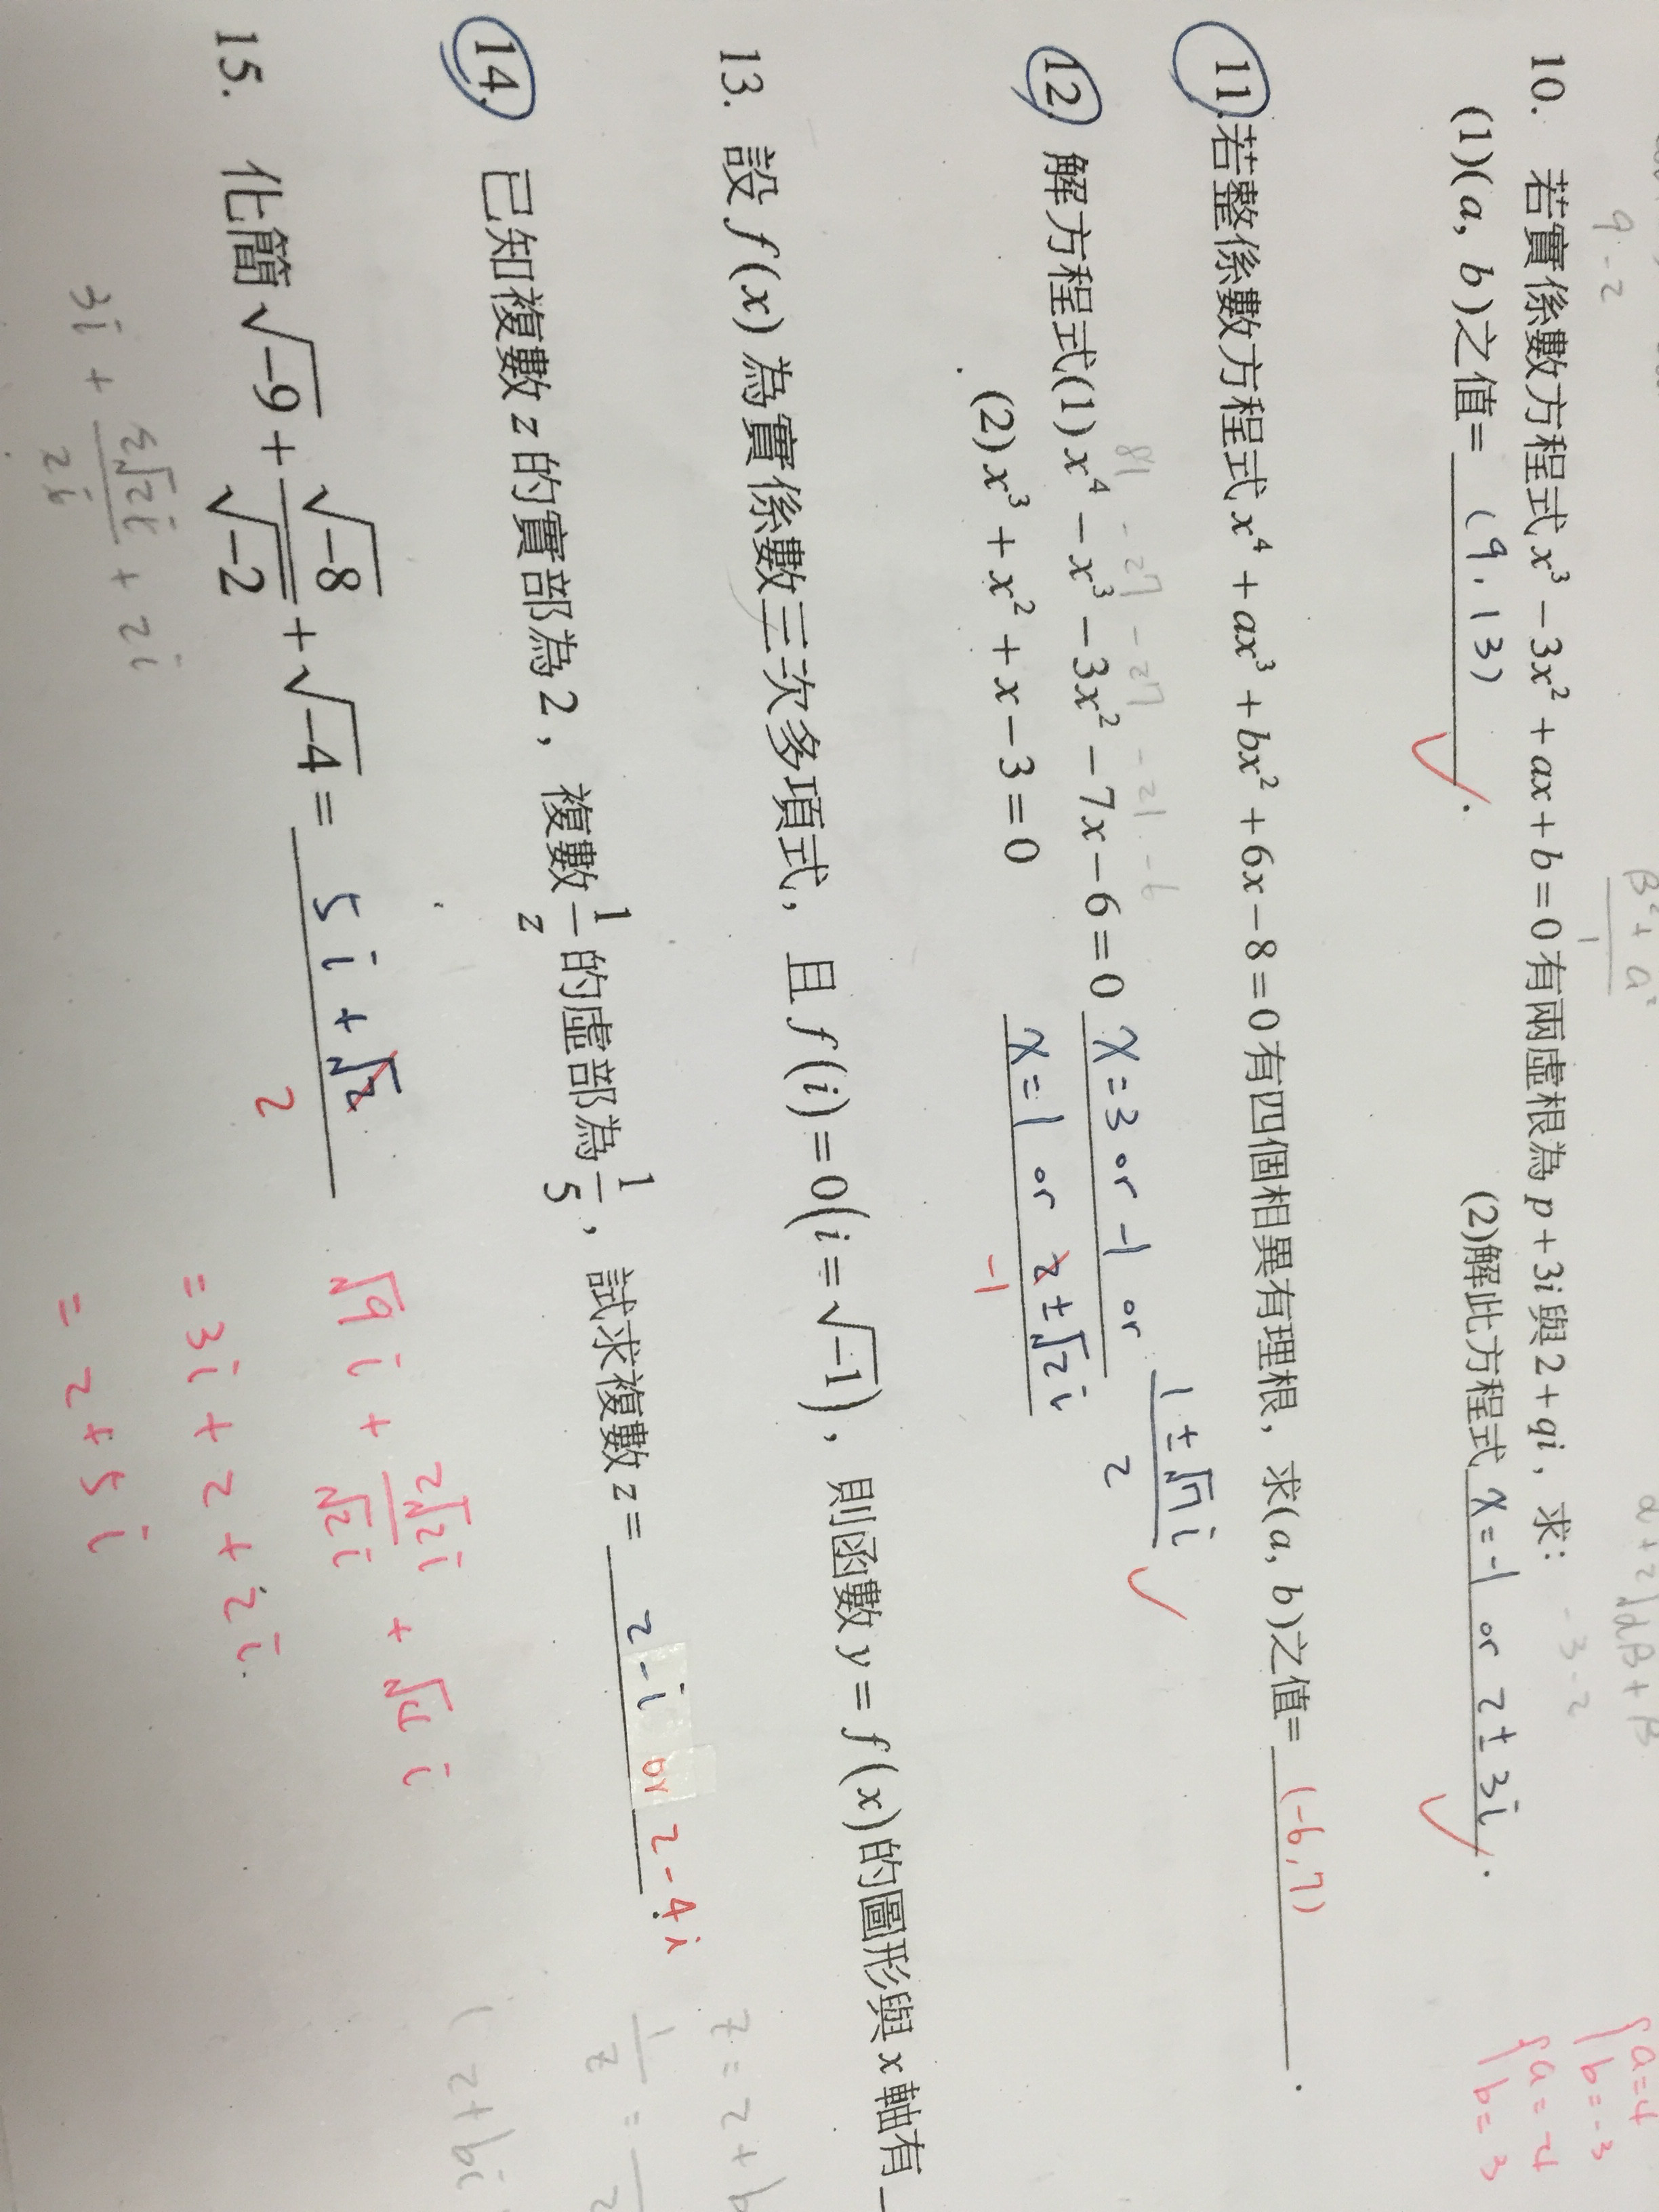 9 - 2
10. 若實係數方程式 x³ − 3x² + ax + b = 0 有兩虛根為 p + 3i 與 2 + qi，求：
(1)(a, b)之值= (9, 13) ✓. (2)解此方程式 x = -1 or 2 ± 3i ✓.
a = 4
b = -3
a = -4
b = 3
11. 若整係數方程式 x⁴ + ax³ + bx² + 6x − 8 = 0 有四個相異有理根，求(a, b)之值= (-6, 7).
12. 解方程式(1) x⁴ − x³ − 3x² − 7x − 6 = 0 x = 3 or -1 or (1 ± √7 i)/2 ✓
(2) x³ + x² + x − 3 = 0 x = 1 or 2 ± √2 i
-1
13. 設 f(x) 為實係數三次多項式，且 f(i) = 0(i = √−1)，則函數 y = f(x)的圖形與 x 軸有
14. 已知複數 z 的實部為 2，複數 1/z 的虛部為 1/5，試求複數 z = 2 - i or 2 - 4i.
15. 化簡 √−9 + √−8/√−2 + √−4 = 5i + √2
2
√9 i + 2√2 i/√2 i + √4 i
= 3i + 2 + 2i
= 2 + 5i